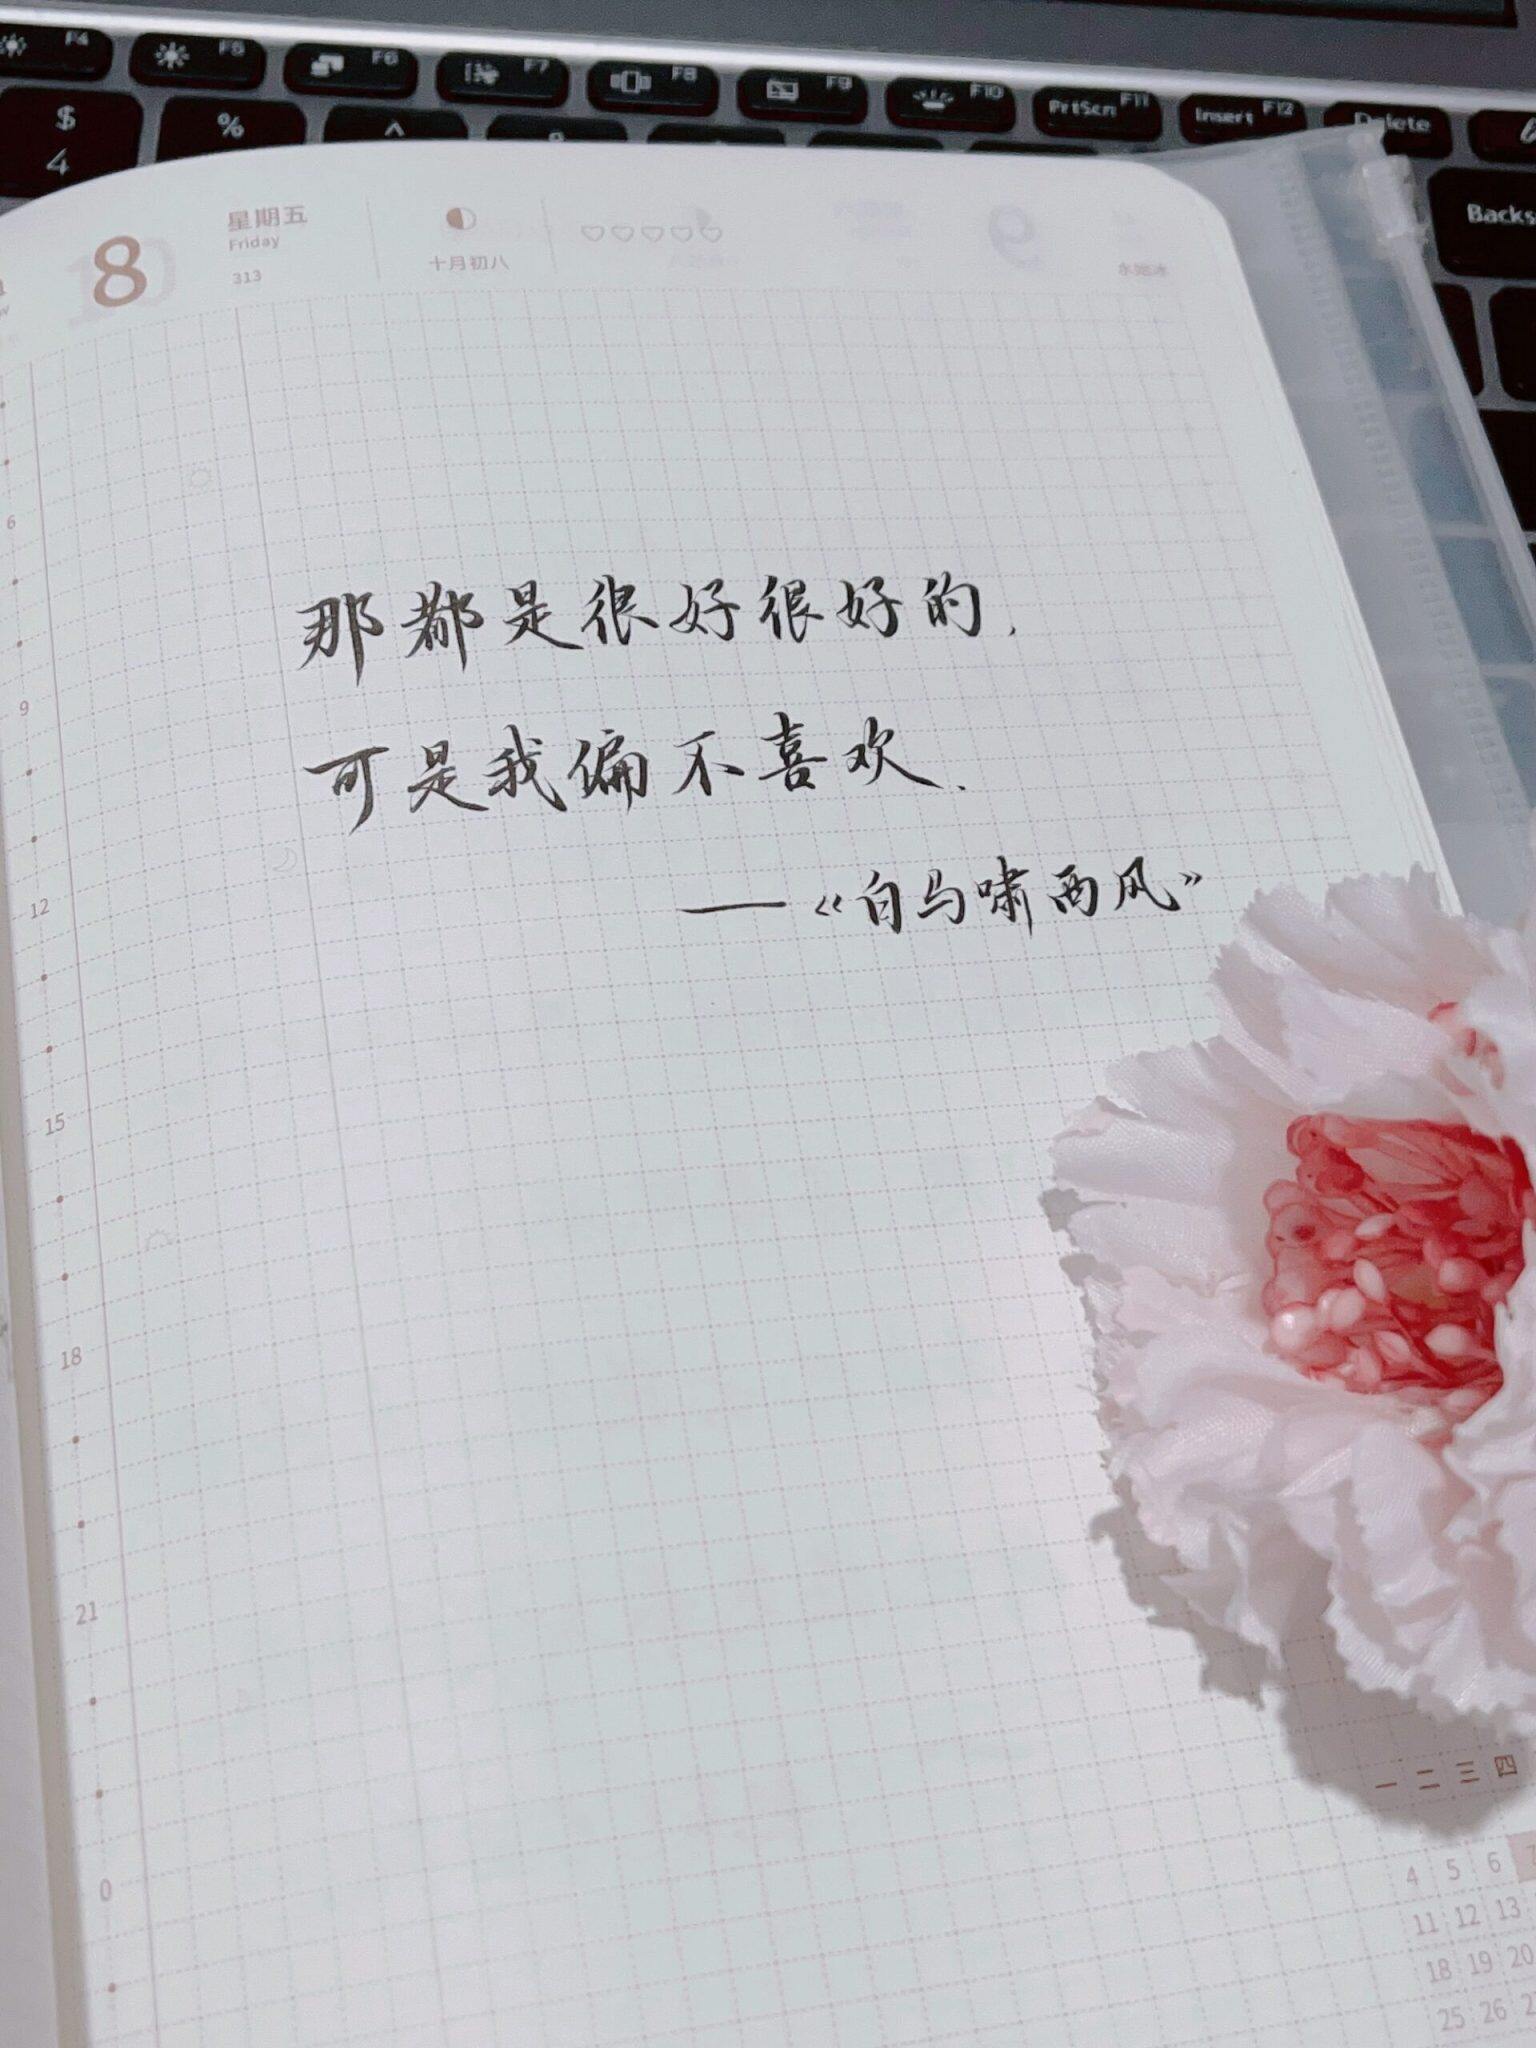 F4 F5 F6 F7 F8 F9 F10 PrtScn F11 Insert F12 Delete
$ % ^
4
Backs
8 星期五 十月初八
Friday
313
6
9
12
15
18
21
0
那都是很好很好的,
可是我偏不喜欢.
——《白马啸西风》
一 二 三 四
4 5 6 7
11 12 13
18 19 20
25 26